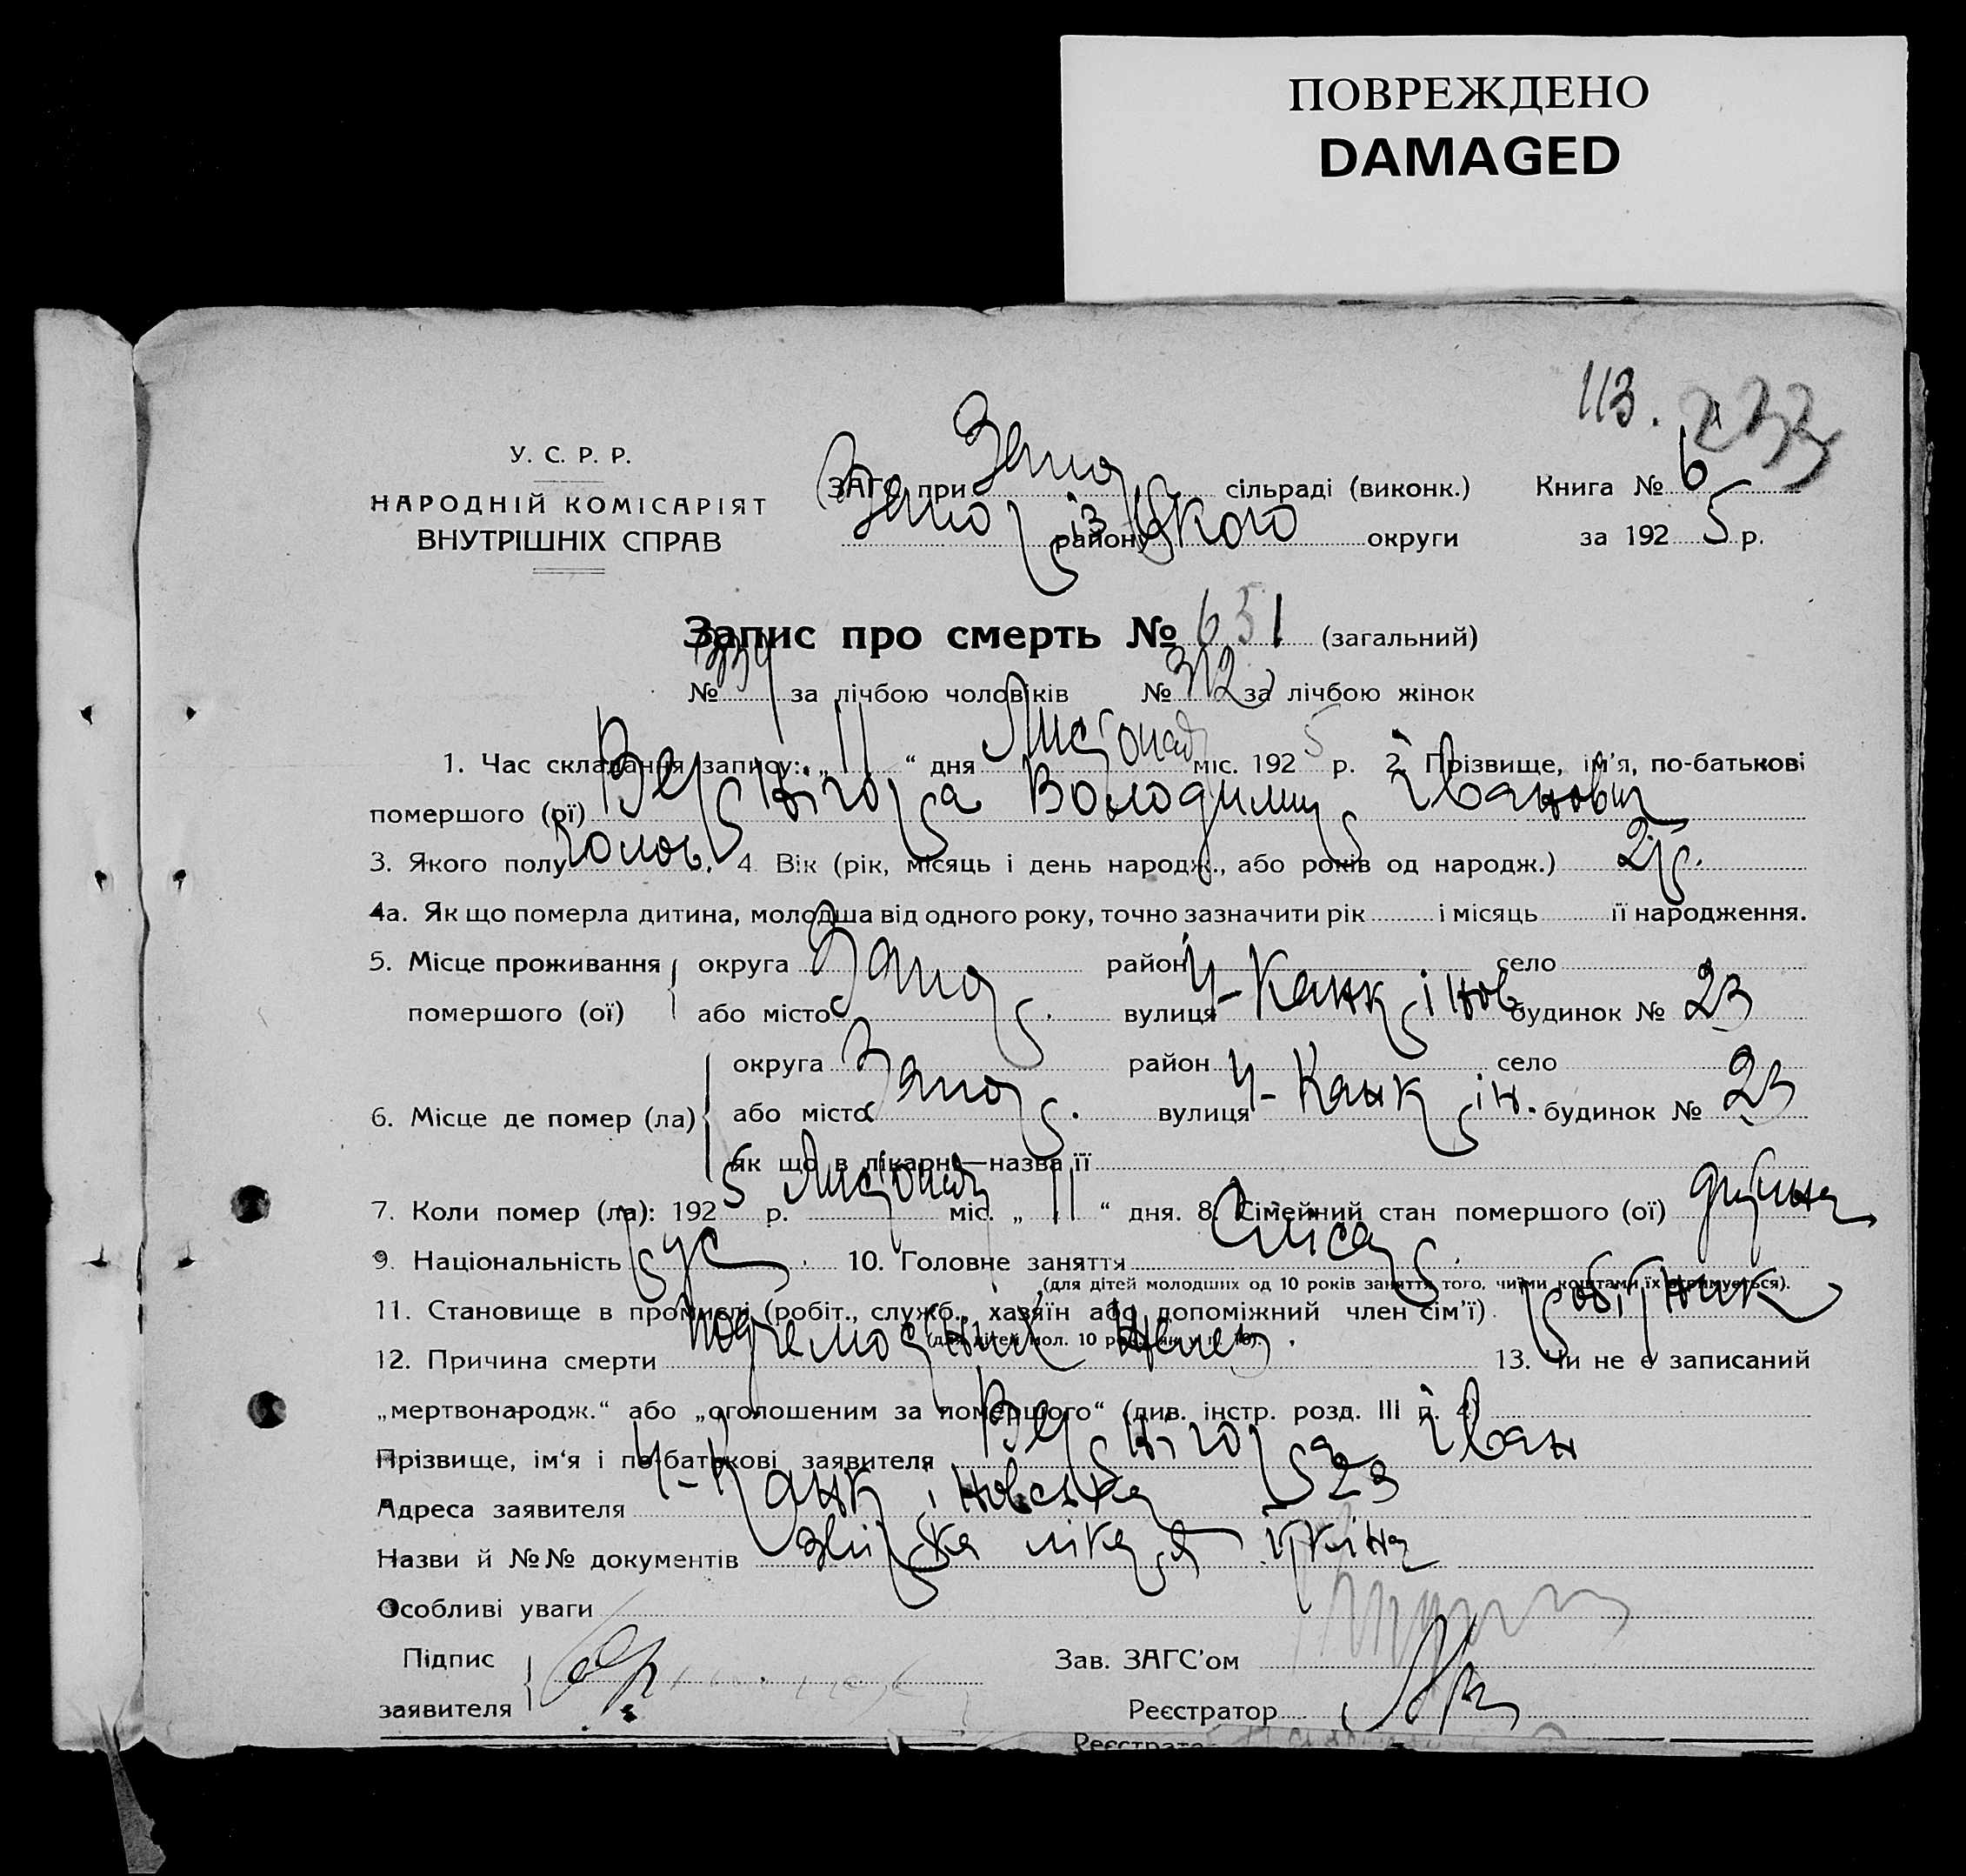 ПОВРЕЖДЕНО
DAMAGED
113. 233
У. С. Р. Р.
НАРОДНІЙ КОМІСАРІЯТ
ВНУТРІШНІХ СПРАВ
ЗАГС при Запор сільраді (виконк.) Книга № 6
Запорізького району округи за 1925 р.
Запис про смерть № 651 (загальний)
№ 339 за лічбою чоловіків № 312 за лічбою жінок
1. Час складання запису: „ 11 “ дня Листопад міс. 1925 р. 2. Прізвище, ім'я, по-батькові
помершого (ої) Володимир Іванович
3. Якого полу чолов. 4. Вік (рік, місяць і день народж., або років од народж.) 2 р.
4а. Як що померла дитина, молодша від одного року, точно зазначити рік і місяць її народження.
5. Місце проживання округа Запор район село
помершого (ої) або місто вулиця будинок № 23
округа Запор. район село
6. Місце де помер (ла) або місто вулиця будинок № 23
як що в лікарні—назва її
7. Коли помер (ла): 1925 р. Листопад міс. „ 11 “ дня. 8. Сімейний стан помершого (ої) дитина
9. Національність рус 10. Головне заняття Слюсар.
(для дітей молодших од 10 років заняття того, чиїми коштами їх отримується).
11. Становище в промислі (робіт., служб., хазяїн або допоміжний член сім'ї) робітник
(для дітей мол. 10 рок. як у п. 10).
12. Причина смерти 13. Чи не є записаний
„мертвонародж.“ або „оголошеним за помершого“ (див. інстр. розд. III п. 4)
Прізвище, ім‘я і по-батькові заявителя Іван
Адреса заявителя 23
Назви й №№ документів лікаря
Особливі уваги
Підпис Зав. ЗАГС'ом
заявителя Реєстратор
Реєстрато